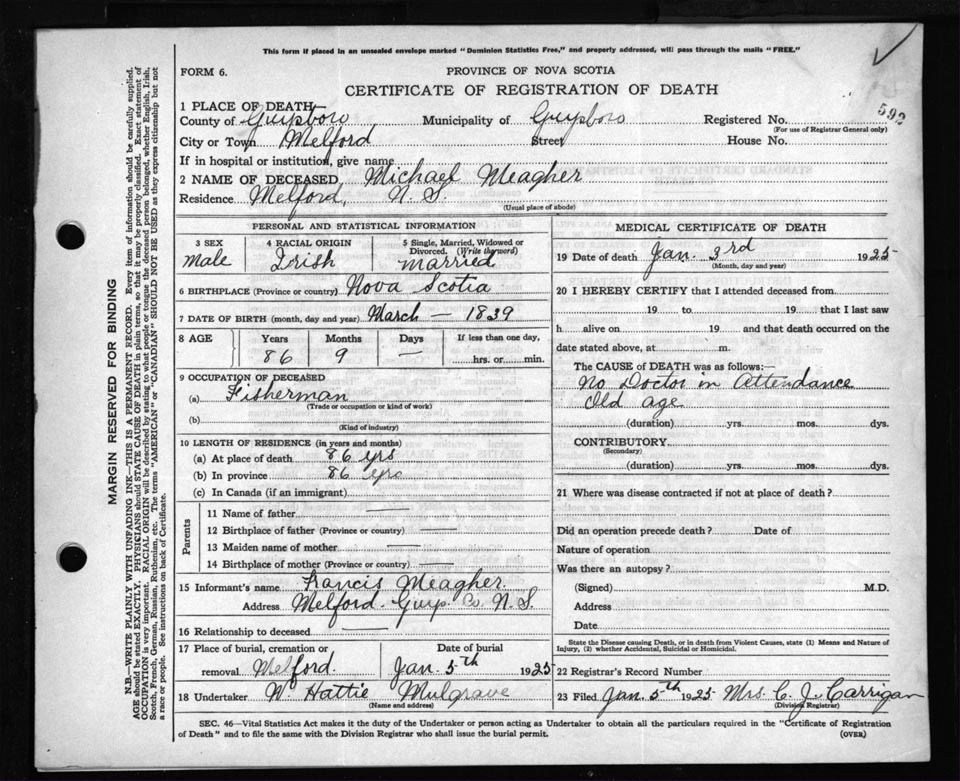 This form if placed in an unsealed envelope marked "Dominion Statistics Free," and properly addressed, will pass through the mails "FREE."
FORM 6.
PROVINCE OF NOVA SCOTIA
CERTIFICATE OF REGISTRATION OF DEATH
592
1 PLACE OF DEATH—
County of Guysboro Municipality of Guysboro Registered No.
(For use of Registrar General only)
City or Town Melford Street House No.
If in hospital or institution, give name
2 NAME OF DECEASED Michael Meagher
Residence Melford, N. S.
(Usual place of abode)
PERSONAL AND STATISTICAL INFORMATION
3 SEX
Male
4 RACIAL ORIGIN
Irish
5 Single, Married, Widowed or Divorced. (Write the word)
Married
6 BIRTHPLACE (Province or country) Nova Scotia
7 DATE OF BIRTH (month, day and year) March — 1839
8 AGE Years Months Days If less than one day,
86 9 — hrs. or min.
9 OCCUPATION OF DECEASED
(a) Fisherman
(Trade or occupation or kind of work)
(b)
(Kind of industry)
10 LENGTH OF RESIDENCE (in years and months)
(a) At place of death 86 yrs
(b) In province 86 yrs
(c) In Canada (if an immigrant)
Parents
11 Name of father —
12 Birthplace of father (Province or country) —
13 Maiden name of mother —
14 Birthplace of mother (Province or country) —
15 Informant's name Francis Meagher
Address Melford Guys. Co. N. S.
16 Relationship to deceased —
17 Place of burial, cremation or Date of burial
removal Melford. Jan. 5th 1925
18 Undertaker W Hattie Mulgrave
(Name and address)
MEDICAL CERTIFICATE OF DEATH
19 Date of death Jan. 3rd 1925
(Month, day and year)
20 I HEREBY CERTIFY that I attended deceased from
19 to 19 that I last saw
h alive on 19 and that death occurred on the
date stated above, at m.
The CAUSE OF DEATH was as follows:—
No Doctor in Attendance
Old age
(duration) yrs. mos. dys.
CONTRIBUTORY
(Secondary)
(duration) yrs. mos. dys.
21 Where was disease contracted if not at place of death?
Did an operation precede death? Date of
Nature of operation
Was there an autopsy?
(Signed) M.D.
Address
Date
State the Disease causing Death, or in death from Violent Causes, state (1) Means and Nature of
Injury, (2) whether Accidental, Suicidal or Homicidal.
22 Registrar's Record Number
23 Filed Jan. 5th 1925 Mrs. C. J. Carrigan
(Division Registrar)
SEC. 46—Vital Statistics Act makes it the duty of the Undertaker or person acting as Undertaker to obtain all the particulars required in the "Certificate of Registration
of Death" and to file the same with the Division Registrar who shall issue the burial permit.
(OVER)
MARGIN RESERVED FOR BINDING
N.B.—WRITE PLAINLY WITH UNFADING INK—THIS IS A PERMANENT RECORD. Every item of information should be carefully supplied.
AGE should be stated EXACTLY. PHYSICIANS should STATE CAUSE OF DEATH in plain terms, so that it may be properly classified. Exact statement of
OCCUPATION is very important. RACIAL ORIGIN will be described by stating to what people or tongue the deceased person belonged, whether English, Irish,
Scotch, French, German, Russian, Ruthenian, etc. The terms "AMERICAN" or "CANADIAN" SHOULD NOT BE USED as they express citizenship but not
a race or people. See instructions on back of Certificate.